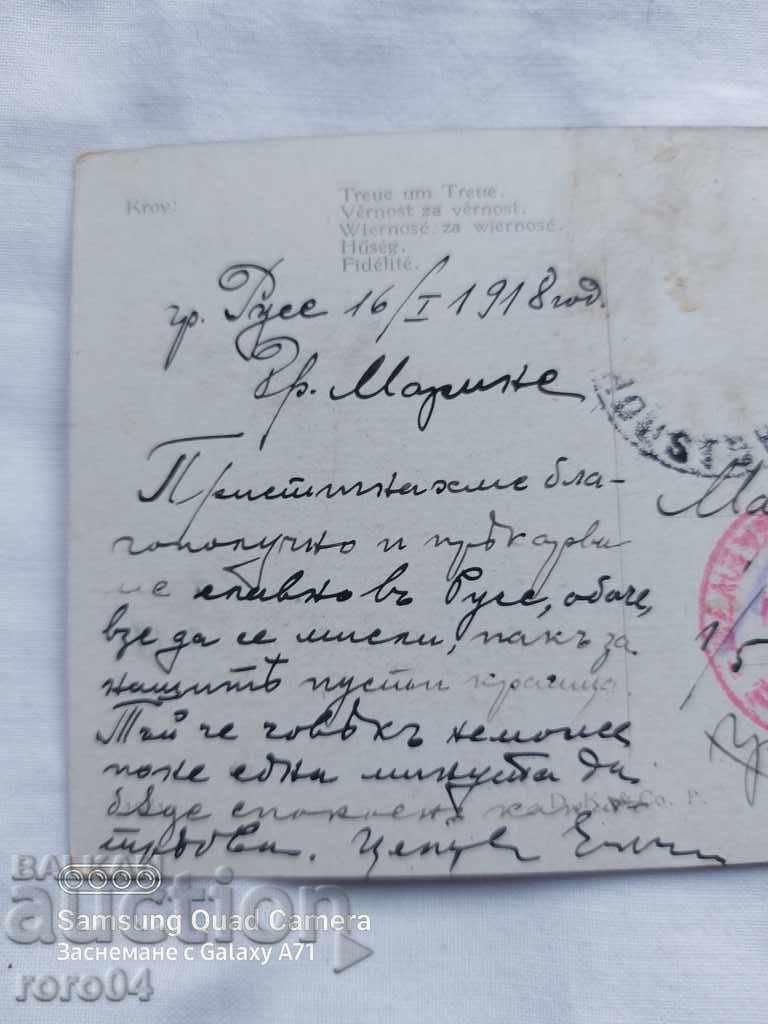 Treue um Treue.
Věrnost za věrnost.
Wierność za wierność.
Hűség.
Fidélité.
гр. Русе 16/I 1918 год.
Бр. Марине
Пристигнахме бла-
гополучно и прѣкарва
ме славно въ Русе, обаче,
взе да се мисли, пакъ за
нашитѣ пусти
Тъй че човѣкъ неможе
поне една минута да
бѫде спокоенъ
трѣбва. Целува
D.K.&Co. P.
Ма
1/5
BALKAN
auction
Samsung Quad Camera
Заснемане с Galaxy A71
roro04